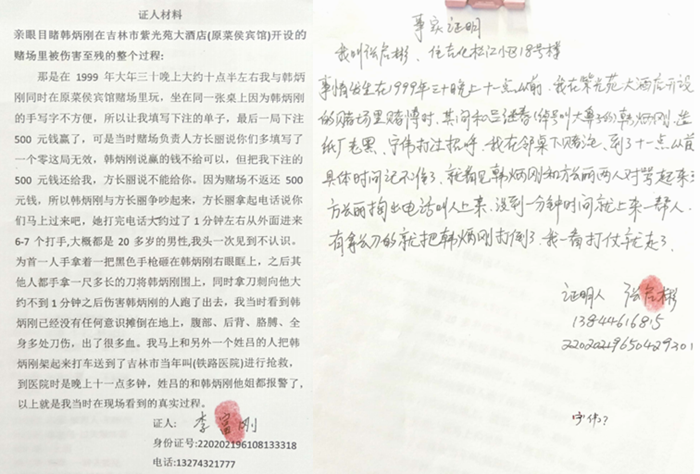 证人材料
亲眼目睹韩炳刚在吉林市紫光苑大酒店(原菜侯宾馆)开设的
赌场里被伤害至残的整个过程:
那是在 1999 年大年三十晚上大约十点半左右我与韩炳
刚同时在原菜侯宾馆赌场里玩，坐在同一张桌上因为韩炳刚
的手写字不方便，所以让我填写下注的单子，最后一局下注
500 元钱赢了，可是当时赌场负责人方长丽说你们多填写了
一个零这局无效，韩炳刚说赢的钱不给可以，但把我下注的
500 元钱还给我，方长丽说不能给你。因为赌场不返还 500
元钱，所以韩炳刚与方长丽争吵起来，方长丽拿起电话说你
们马上过来吧，她打完电话大约过了 1 分钟左右从外面进来
6-7 个打手,大概都是 20 多岁的男性,我头一次见到不认识。
为首一人手拿着一把黑色手枪砸在韩炳刚右眼眶上，之后其
他人都手拿一尺多长的刀将韩炳刚围上，同时拿刀刺向他大
约不到 1 分钟之后伤害韩炳刚的人跑了出去，我当时看到韩
炳刚已经没有任何意识摊倒在地上，腹部、后背、胳膊、全
身多处刀伤，出了很多血。我马上和另外一个姓吕的人把韩
炳刚架起来打车送到了吉林市当年叫(铁路医院)进行抢救，
到医院时是晚上十一点多钟，姓吕的和韩炳刚他姐都报警了，
以上就是我当时在现场看到的真实过程。
证人: 李富刚
身份证号:220202196108133318
电话:13274321777
事实证明
我叫张启彬，住在化松江小区18号楼
事情发生在1999年三十晚上十一点以前，我在紫光苑大酒店开设
的赌场里赌博时，其间和吕继春(绰号叫大
的韩炳刚，造
纸厂老黑，宇伟打过招呼，我在邻桌下赌注，到了十一点以前
具体时间记不清了，就看见韩炳刚和方长丽两人对骂起来了
方长丽掏出电话叫人上来，没到一分钟时间就上来一帮人，
有拿长刀的就把韩炳刚打倒了，我一看打仗就走了．
证明人 张启彬
13844616815
宇伟？